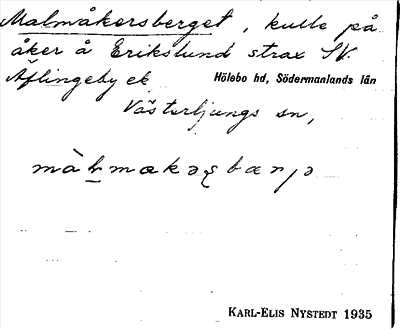 Malmåkersberget, kulle på
åker å Erikslund strax SV.
Äflingeby ek. Hölebo hd, Södermanlands län
Västerljungs sn,
KARL-ELIS NYSTEDT 1935